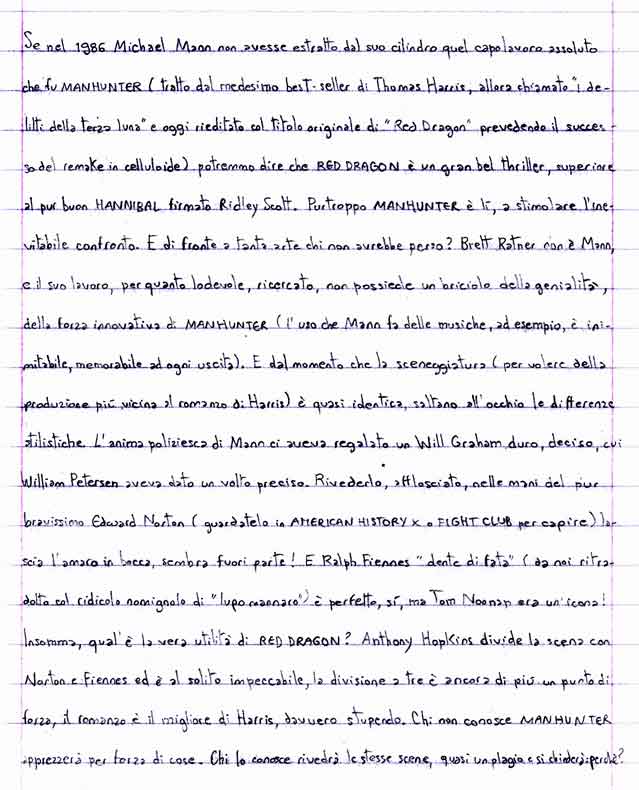 Se nel 1986 Michael Mann non avesse estratto dal suo cilindro quel capolavoro assoluto
che fu MANHUNTER (tratto dal medesimo best-seller di Thomas Harris, allora chiamato "i de-
litti della terza luna" e oggi rieditato col titolo originale di "Red Dragon" prevedendo il succes-
so del remake in celluloide) potremmo dire che RED DRAGON è un gran bel thriller, superiore
al pur buon HANNIBAL firmato Ridley Scott. Purtroppo MANHUNTER è lì, a stimolare l'ine-
vitabile confronto. E di fronte a tanta arte chi non avrebbe perso? Brett Ratner non è Mann,
e il suo lavoro, per quanto lodevole, ricercato, non possiede un briciolo della genialità,
della forza innovativa di MANHUNTER (l'uso che Mann fa delle musiche, ad esempio, è ini-
mitabile, memorabile ad ogni uscita). E dal momento che la sceneggiatura (per volere della
produzione più vicina al romanzo di Harris) è quasi identica, saltano all'occhio le differenze
stilistiche. L'anima poliziesca di Mann ci aveva regalato un Will Graham duro, deciso, cui
William Petersen aveva dato un volto preciso. Rivederlo, afflosciato, nelle mani del pur
bravissimo Edward Norton (guardatelo in AMERICAN HISTORY X o FIGHT CLUB per capire) la-
scia l'amaro in bocca, sembra fuori parte! E Ralph Fiennes "dente di fata" (da noi ritra-
dotto col ridicolo nomignolo di "lupo mannaro") è perfetto, sì, ma Tom Noonan era un'icona!
Insomma, qual'è la vera utilità di RED DRAGON? Anthony Hopkins divide la scena con
Norton e Fiennes ed è al solito impeccabile, la divisione a tre è ancora di più un punto di
forza, il romanzo è il migliore di Harris, davvero stupendo. Chi non conosce MANHUNTER
apprezzerà per forza di cose. Chi lo conosce rivedrà le stesse scene, quasi un plagio e si chiederà: perché?